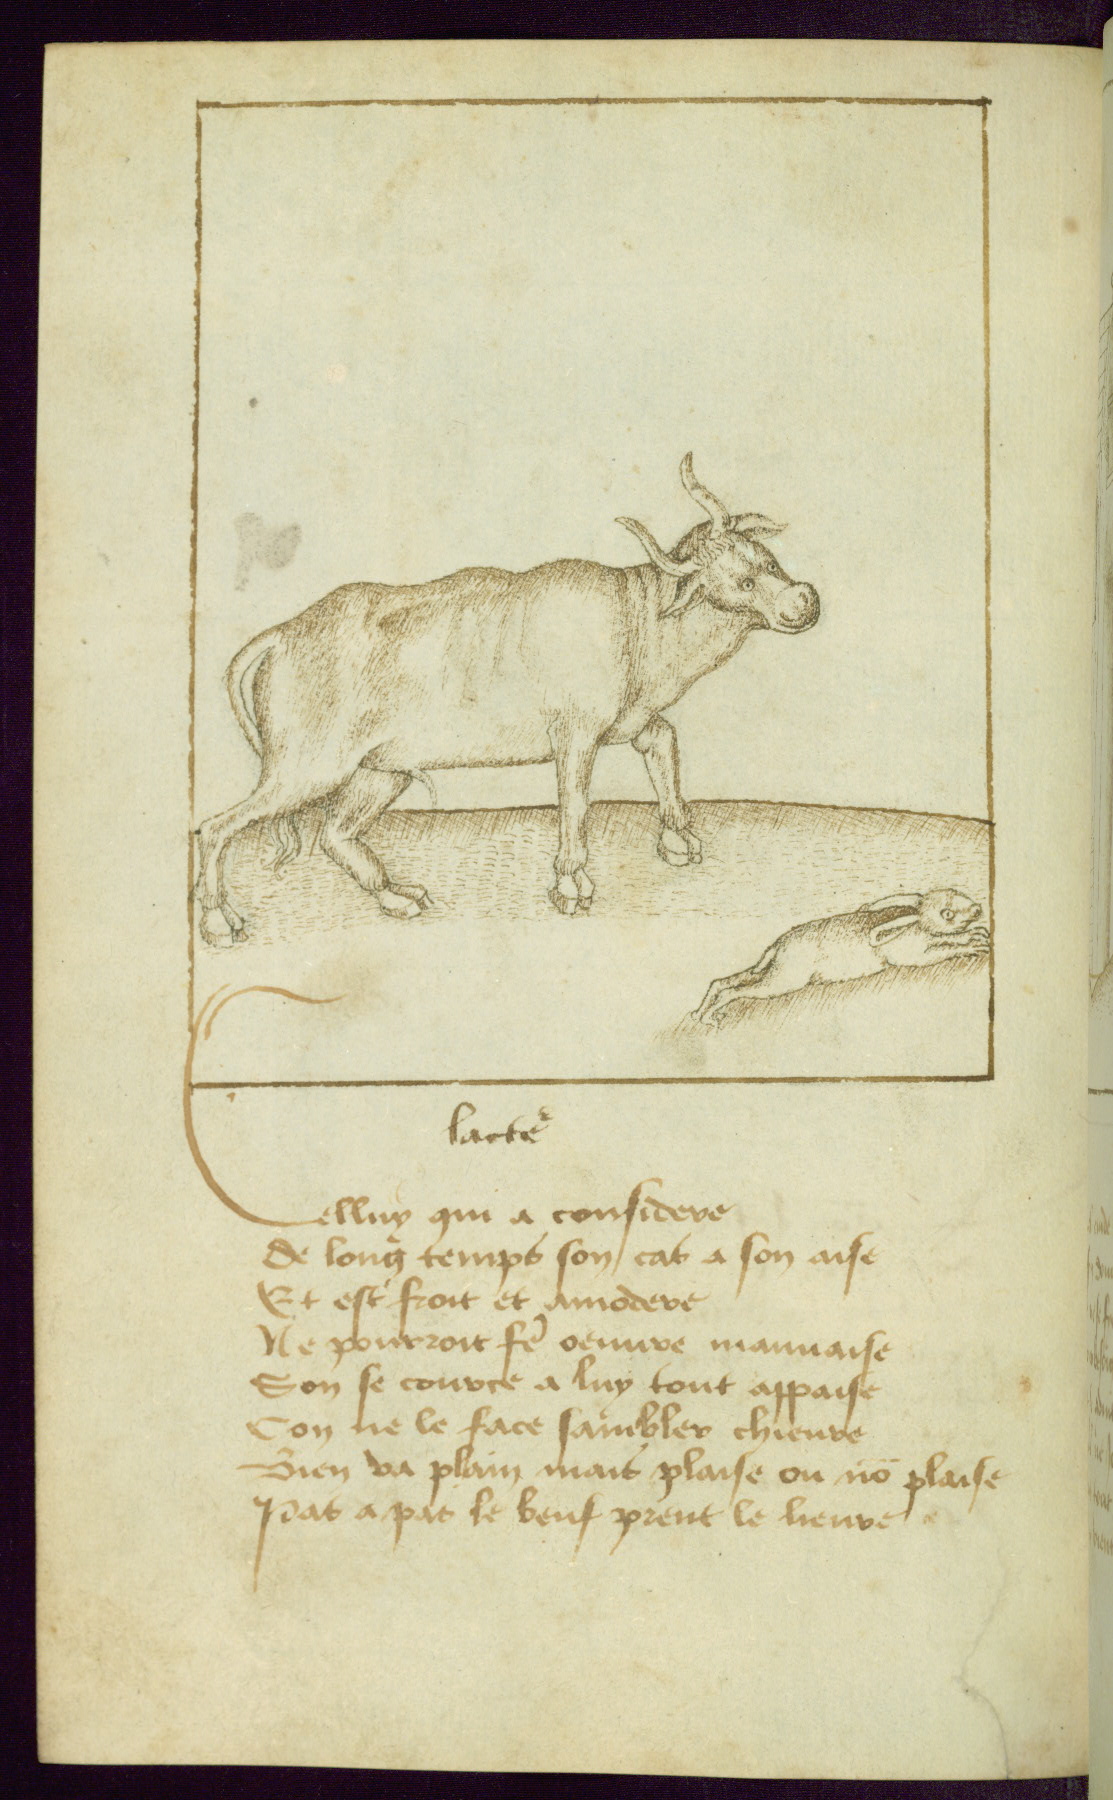 lacteur
Celluy qui a considere
De long temps son cas a son aise
Et est froit et amodere
Ne pourroit fe oeuure mauuaise
Son se cource a luy tout appaise
Con ne le face sambler chieure
Bien va plain mais plaise ou nō plaise
Pas a pas le beuf prent le lieure